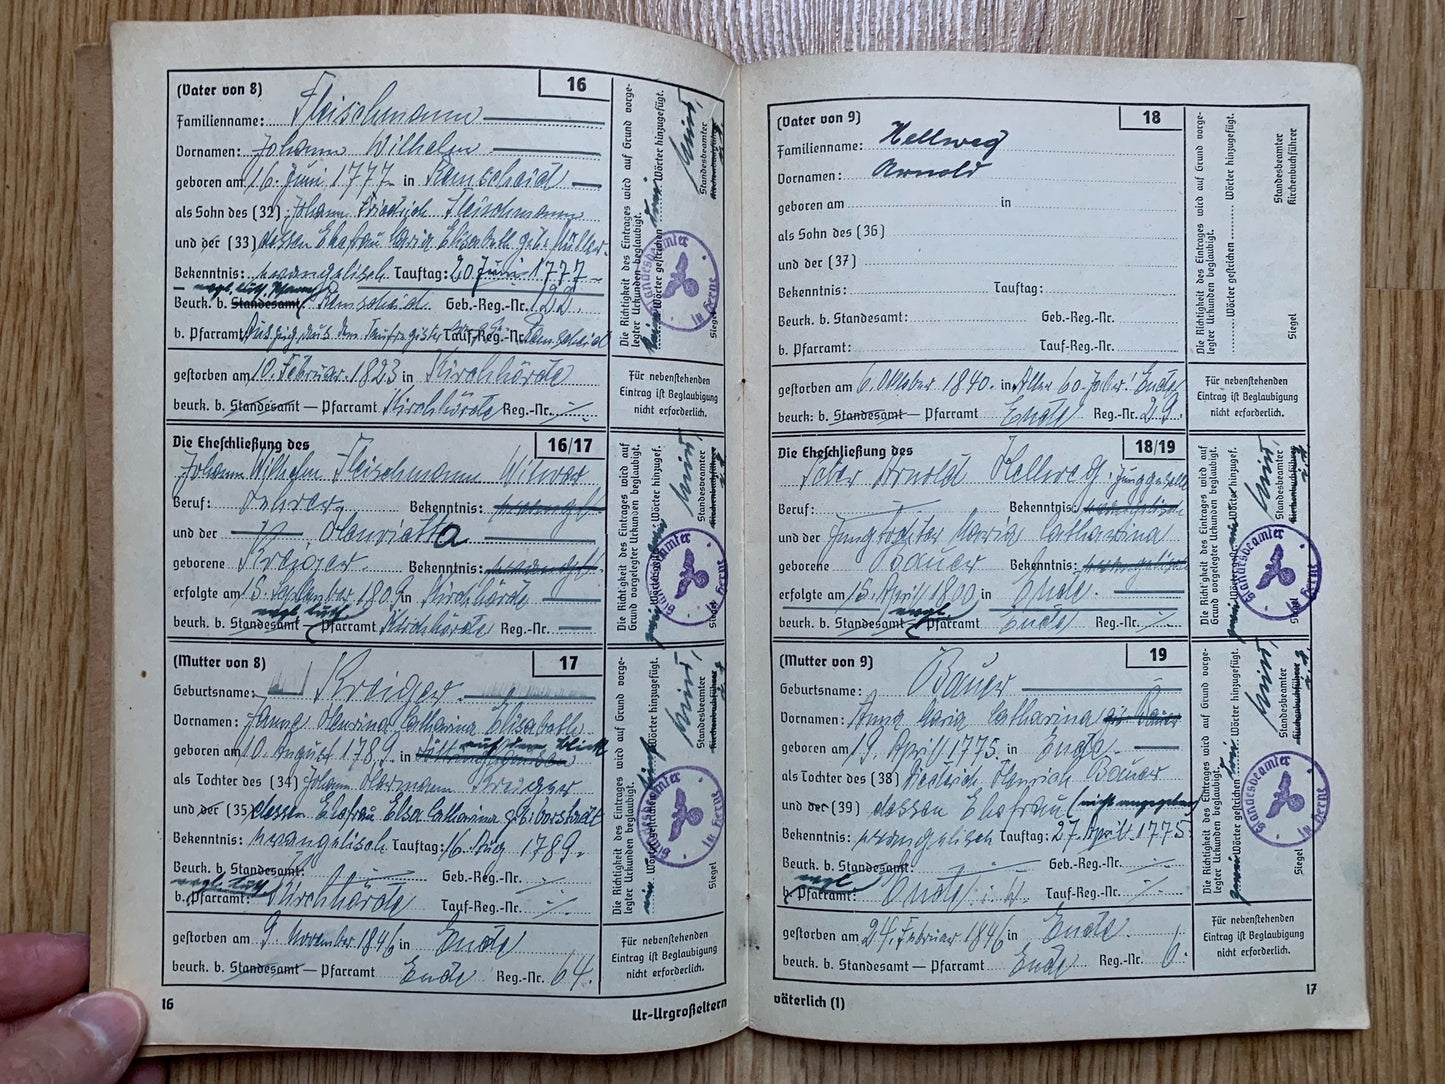 (Vater von 8) 16
Familienname: Fleischmann
Vornamen: Johann Wilhelm
geboren am 16. Juni 1777 in Remscheid
als Sohn des (32) Johann Friedrich Fleischmann
und der (33) dessen Ehefrau Maria Elisabeth geb. Müller
Bekenntnis: evangelisch Tauftag: 20. Juni 1777
evgl. luth. Pfarr
Beurk. b. Standesamt Remscheid Geb.-Reg.-Nr. 22
b. Pfarramt: Auszug aus dem Taufregister Tauf-Reg.-Nr. Remscheid
gestorben am 10. Februar 1823 in Kirchhörde
beurk. b. Standesamt — Pfarramt Kirchhörde Reg.-Nr. -/-
Die Richtigkeit des Eintrages wird auf Grund vorge-
legter Urkunden beglaubigt.
Wörter gestrichen Wörter hinzugefügt.
Standesbeamter
Kirchenbuchführer
Siegel
Standesbeamter in Herne
Für nebenstehenden
Eintrag ist Beglaubigung
nicht erforderlich.
Die Eheschließung des 16/17
Johann Wilhelm Fleischmann Witwer
Beruf: Bekenntnis: evangel.
und der Henrietta
geborene Kreiger Bekenntnis: evangel.
erfolgte am 15. September 1809 in Kirchhörde
evgl. luth.
beurk. b. Standesamt — Pfarramt Kirchhörde Reg.-Nr.
Die Richtigkeit des Eintrages wird auf
Grund vorgelegter Urkunden beglaubigt.
Wörter gestrichen Wörter hinzugef.
Standesbeamter
Kirchenbuchführer
Siegel
Standesbeamter in Herne
(Mutter von 8) 17
Geburtsname: Kreiger
Vornamen: Anna Henrina Catharina Elisabeth
auf dem Blick
geboren am 10. August 1789 in
als Tochter des (34) Johann Hermann Krieger
und der (35) dessen Ehefrau Elsa Catharina geb. Vorstadt
Bekenntnis: evangelisch Tauftag: 16. Aug. 1789
Beurk. b. Standesamt: Geb.-Reg.-Nr. -/-
evgl. luth.
b. Pfarramt: Kirchhörde Tauf-Reg.-Nr. -/-
gestorben am 9. November 1846 in Ende
beurk. b. Standesamt — Pfarramt Ende Reg.-Nr. 64.
Die Richtigkeit des Eintrages wird auf Grund vorge-
legter Urkunden beglaubigt.
Wörter gestrichen Wörter hinzugefügt.
Standesbeamter
Kirchenbuchführer
Siegel
Standesbeamter in Herne
Für nebenstehenden
Eintrag ist Beglaubigung
nicht erforderlich.
16 Ur-Urgroßeltern
(Vater von 9) 18
Familienname: Hellweg
Vornamen: Arnold
geboren am in
als Sohn des (36)
und der (37)
Bekenntnis: Tauftag:
Beurk. b. Standesamt: Geb.-Reg.-Nr.
b. Pfarramt: Tauf-Reg.-Nr.
gestorben am 6. Oktober 1840. in Alter 60 Jahr. Ende
beurk. b. Standesamt — Pfarramt Ende Reg.-Nr. 29.
Die Richtigkeit des Eintrages wird auf Grund vorge-
legter Urkunden beglaubigt.
Wörter gestrichen Wörter hinzugefügt.
Standesbeamter
Kirchenbuchführer
Siegel
Für nebenstehenden
Eintrag ist Beglaubigung
nicht erforderlich.
Die Eheschließung des 18/19
Peter Arnold Hellweg, Junggeselle
Beruf: Bekenntnis: evangelisch
und der Jungtochter Maria Catharina
geborene Bauer Bekenntnis: evangelisch
erfolgte am 15. April 1800 in Ende
evgl.
beurk. b. Standesamt — Pfarramt Ende Reg.-Nr. -/-
Die Richtigkeit des Eintrages wird auf
Grund vorgelegter Urkunden beglaubigt.
Wörter gestrichen Wörter hinzugef.
Standesbeamter
Kirchenbuchführer
Siegel
Standesbeamter in Herne
(Mutter von 9) 19
Geburtsname: Bauer
Vornamen: Anna Maria Catharina
geboren am 19. April 1775 in Ende
als Tochter des (38) Diedrich Henrich Bauer
und der (39) dessen Ehefrau (nicht angegeben)
Bekenntnis: evangelisch Tauftag: 27. April 1775
Beurk. b. Standesamt: -/- Geb.-Reg.-Nr. -/-
evgl.
b. Pfarramt: Ende Tauf-Reg.-Nr. -/-
gestorben am 24. Februar 1846 in Ende
beurk. b. Standesamt — Pfarramt Ende Reg.-Nr. 6.
Die Richtigkeit des Eintrages wird auf Grund vorge-
legter Urkunden beglaubigt.
Wörter gestrichen Wörter hinzugefügt.
Standesbeamter
Kirchenbuchführer
Siegel
Standesbeamter in Herne
Für nebenstehenden
Eintrag ist Beglaubigung
nicht erforderlich.
väterlich (1) 17